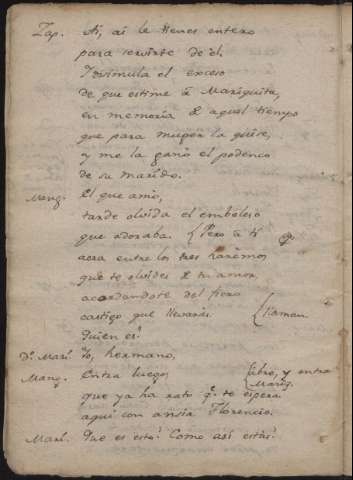 Zap. Ai, ai le tienes entero
para servirte de el.
Disimula el exceso
de que estime à Mariquita,
en memoria de aquel tiempo
que para muger la quise,
y me la ganó el podenco
de su marido.
Marg. El que amó,
tarde olvida el embeleso
que adoraba. Pero à ti
aora entre los tres haremos
que te olvides de tu amor,
acordandote del fiero
castigo que llevarás. llaman
Quien es?
Dª Mari. Yo, hermano,
Marg. Entra luego, abre, y entra Mariq.
que ya ha rato qe. te espera
aqui con ansia Florencio.
Mari. Que es esto? Como asi estás?